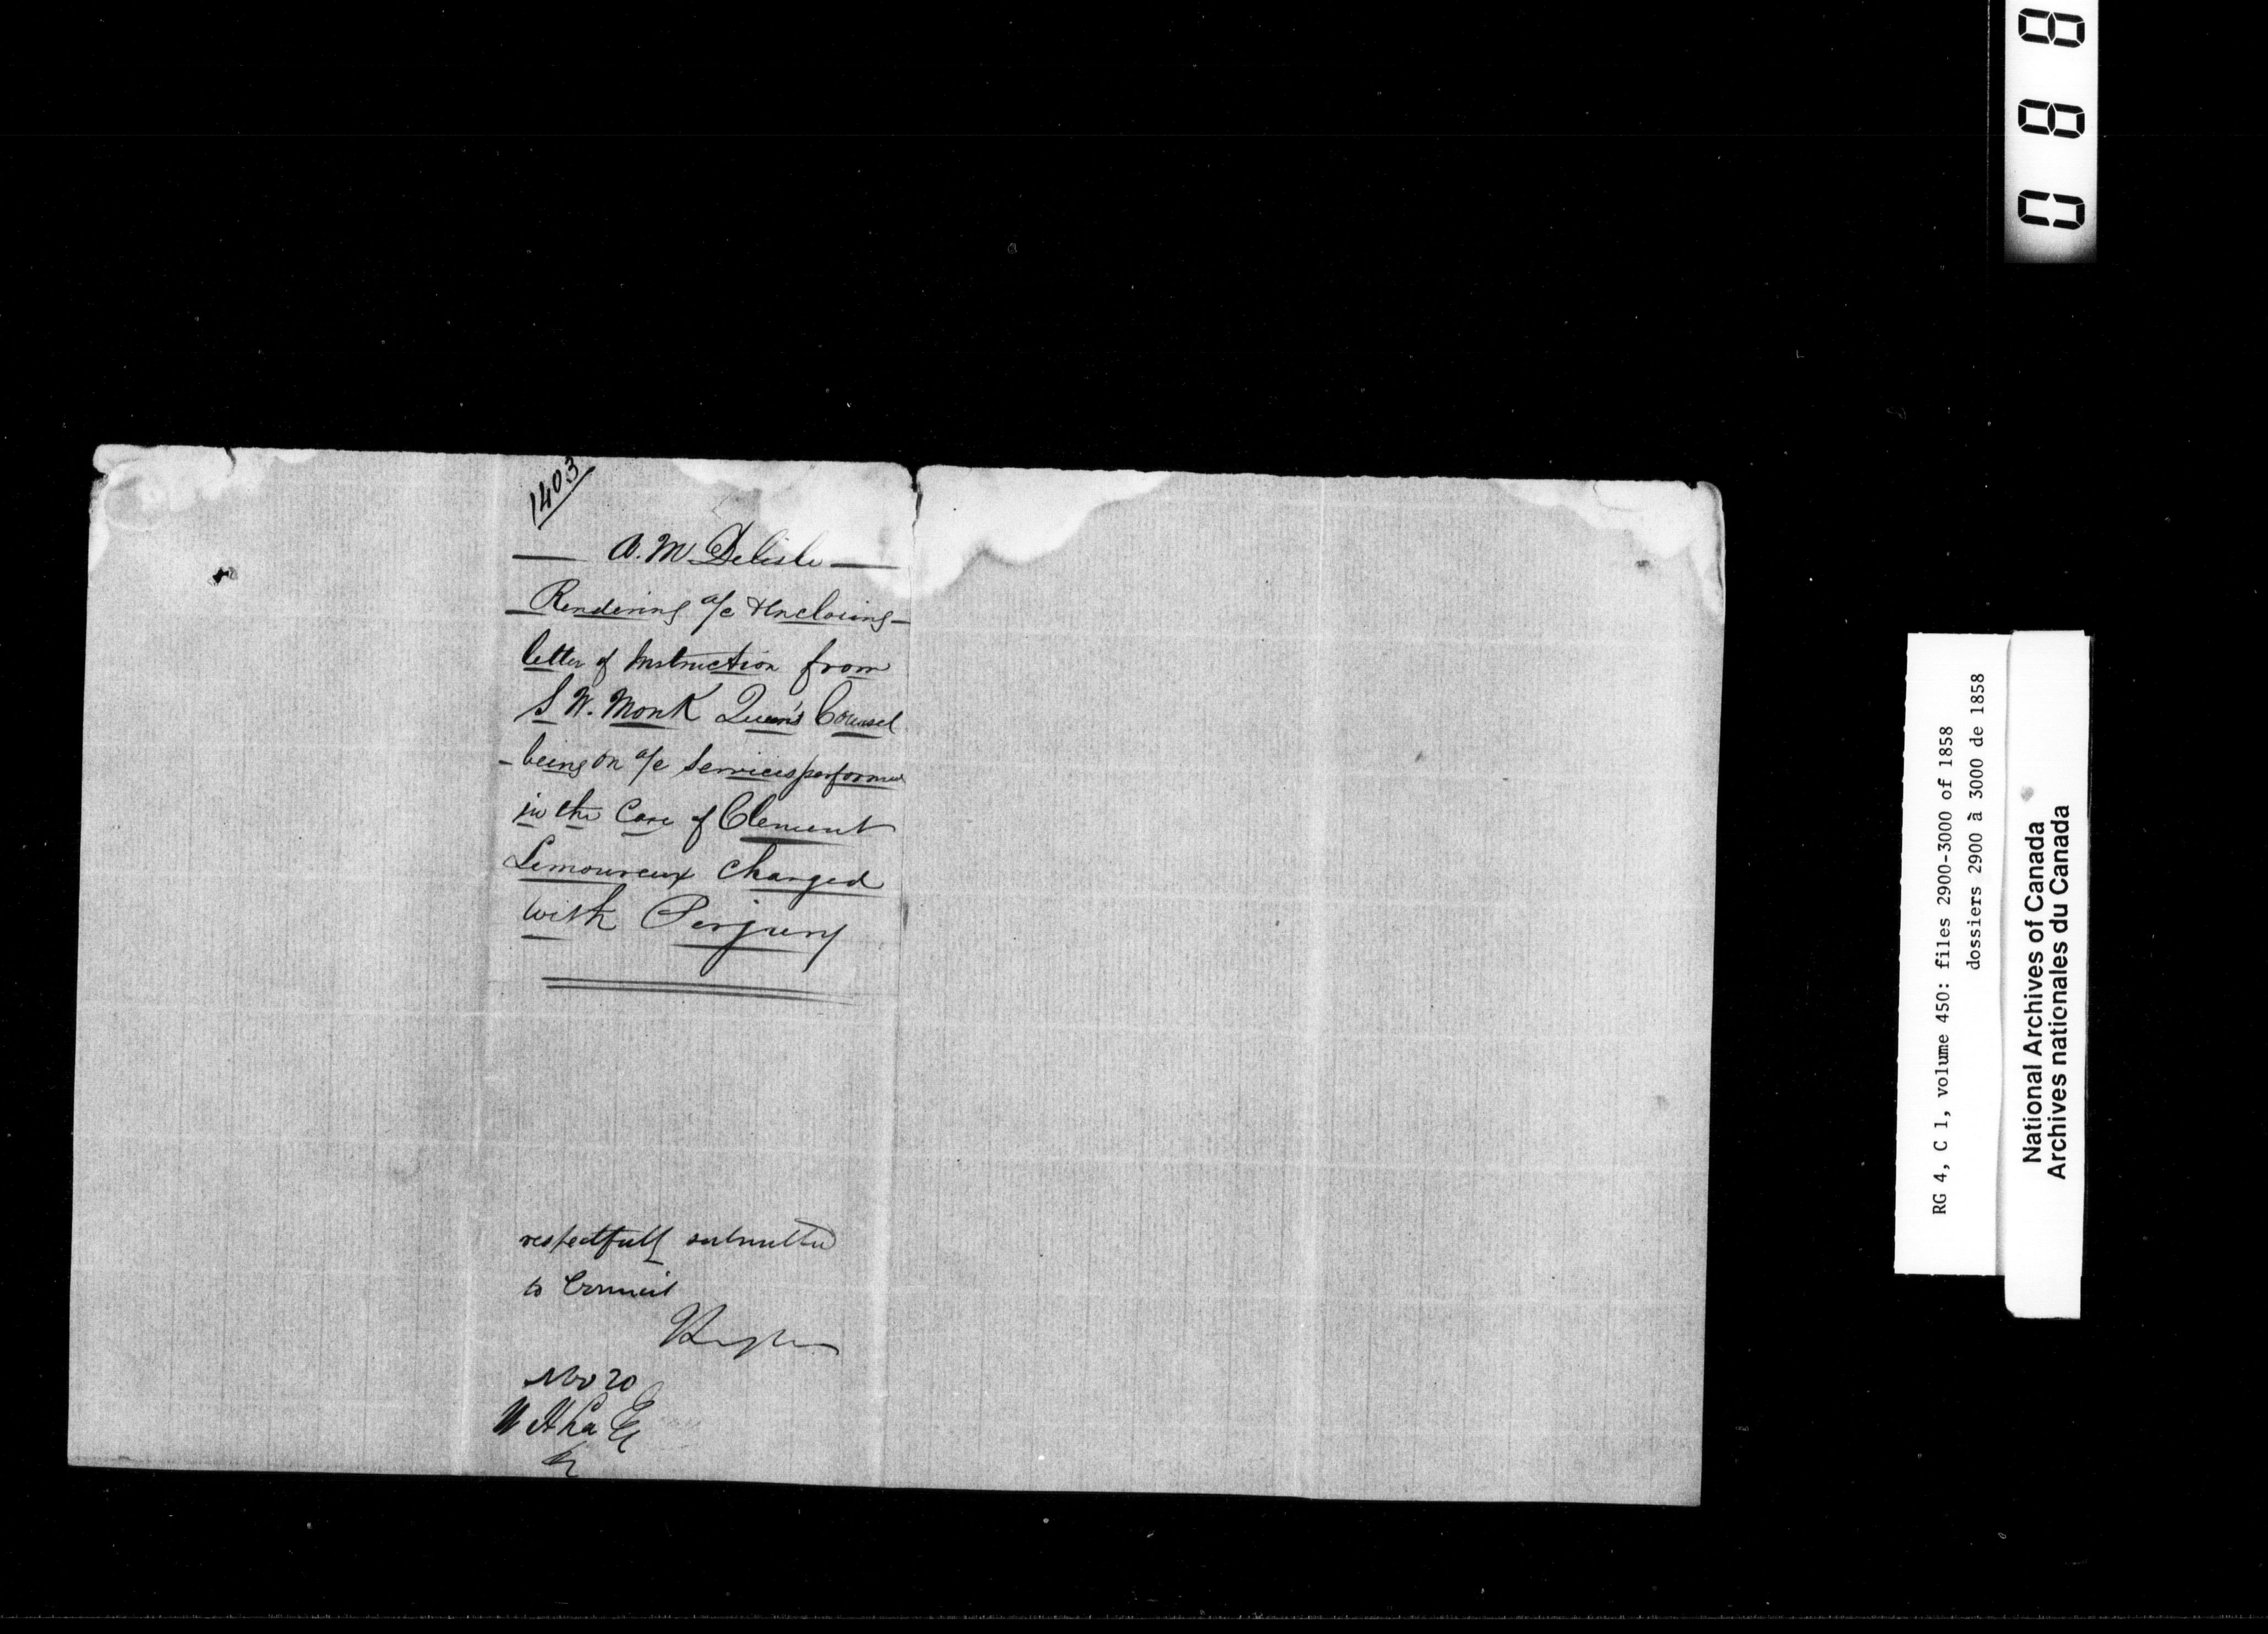 1403
A. M. Delisle
Rendering a/c & Inclosing
letter of Instruction from
S W. Monk Queen's Counsel
being on a/c Services performed
in the Case of Clement
Lemoureux charged
with Perjury
respectfully submitted
to Council
Nov 20
RG 4, C 1, volume 450: files 2900-3000 of 1858
dossiers 2900 à 3000 de 1858
National Archives of Canada
Archives nationales du Canada
0 8 8